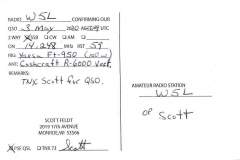 RADIO W5L CONFIRMING OUR
QSO 3 May
2 WAY SSB CW AM
ON 14.248 MHz RST 59
RIG Yaesu Ft-950 (100w)
ANT Cushcraft R-6000 Vert.
REMARKS:
TNX Scott for QSO.
SCOTT FELDT
2019 17TH AVENUE
MONROE, WI 53566
PSE QSL TNX 73 Scott
AMATEUR RADIO STATION
W5L
OP Scott